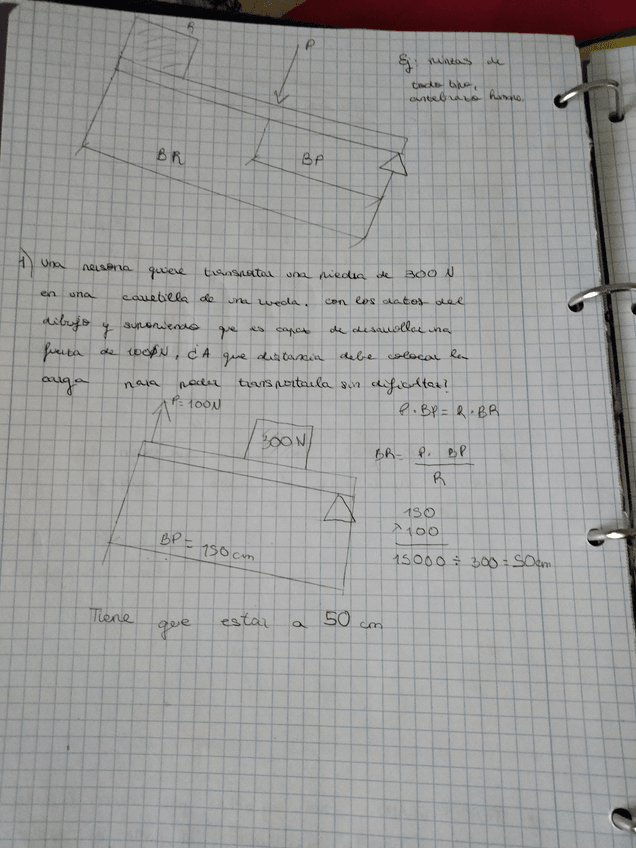 R
P
Ej: pinzas de
todo tipo,
antebrazo humano.
BR
BP
1) Una persona quiere transportar una piedra de 300 N
en una carretilla de una rueda. Con los datos del
dibujo y suponiendo que es capaz de desarrollar una
fuerza de 100 N, ¿A que distancia debe colocar la
carga para poder transportarla sin dificultar?
P=100N
300N
BP = 150cm
P · BP = R · BR
BR = P · BP
R
150
x 100
15000 ÷ 300 = 50cm
Tiene que estar a 50 cm